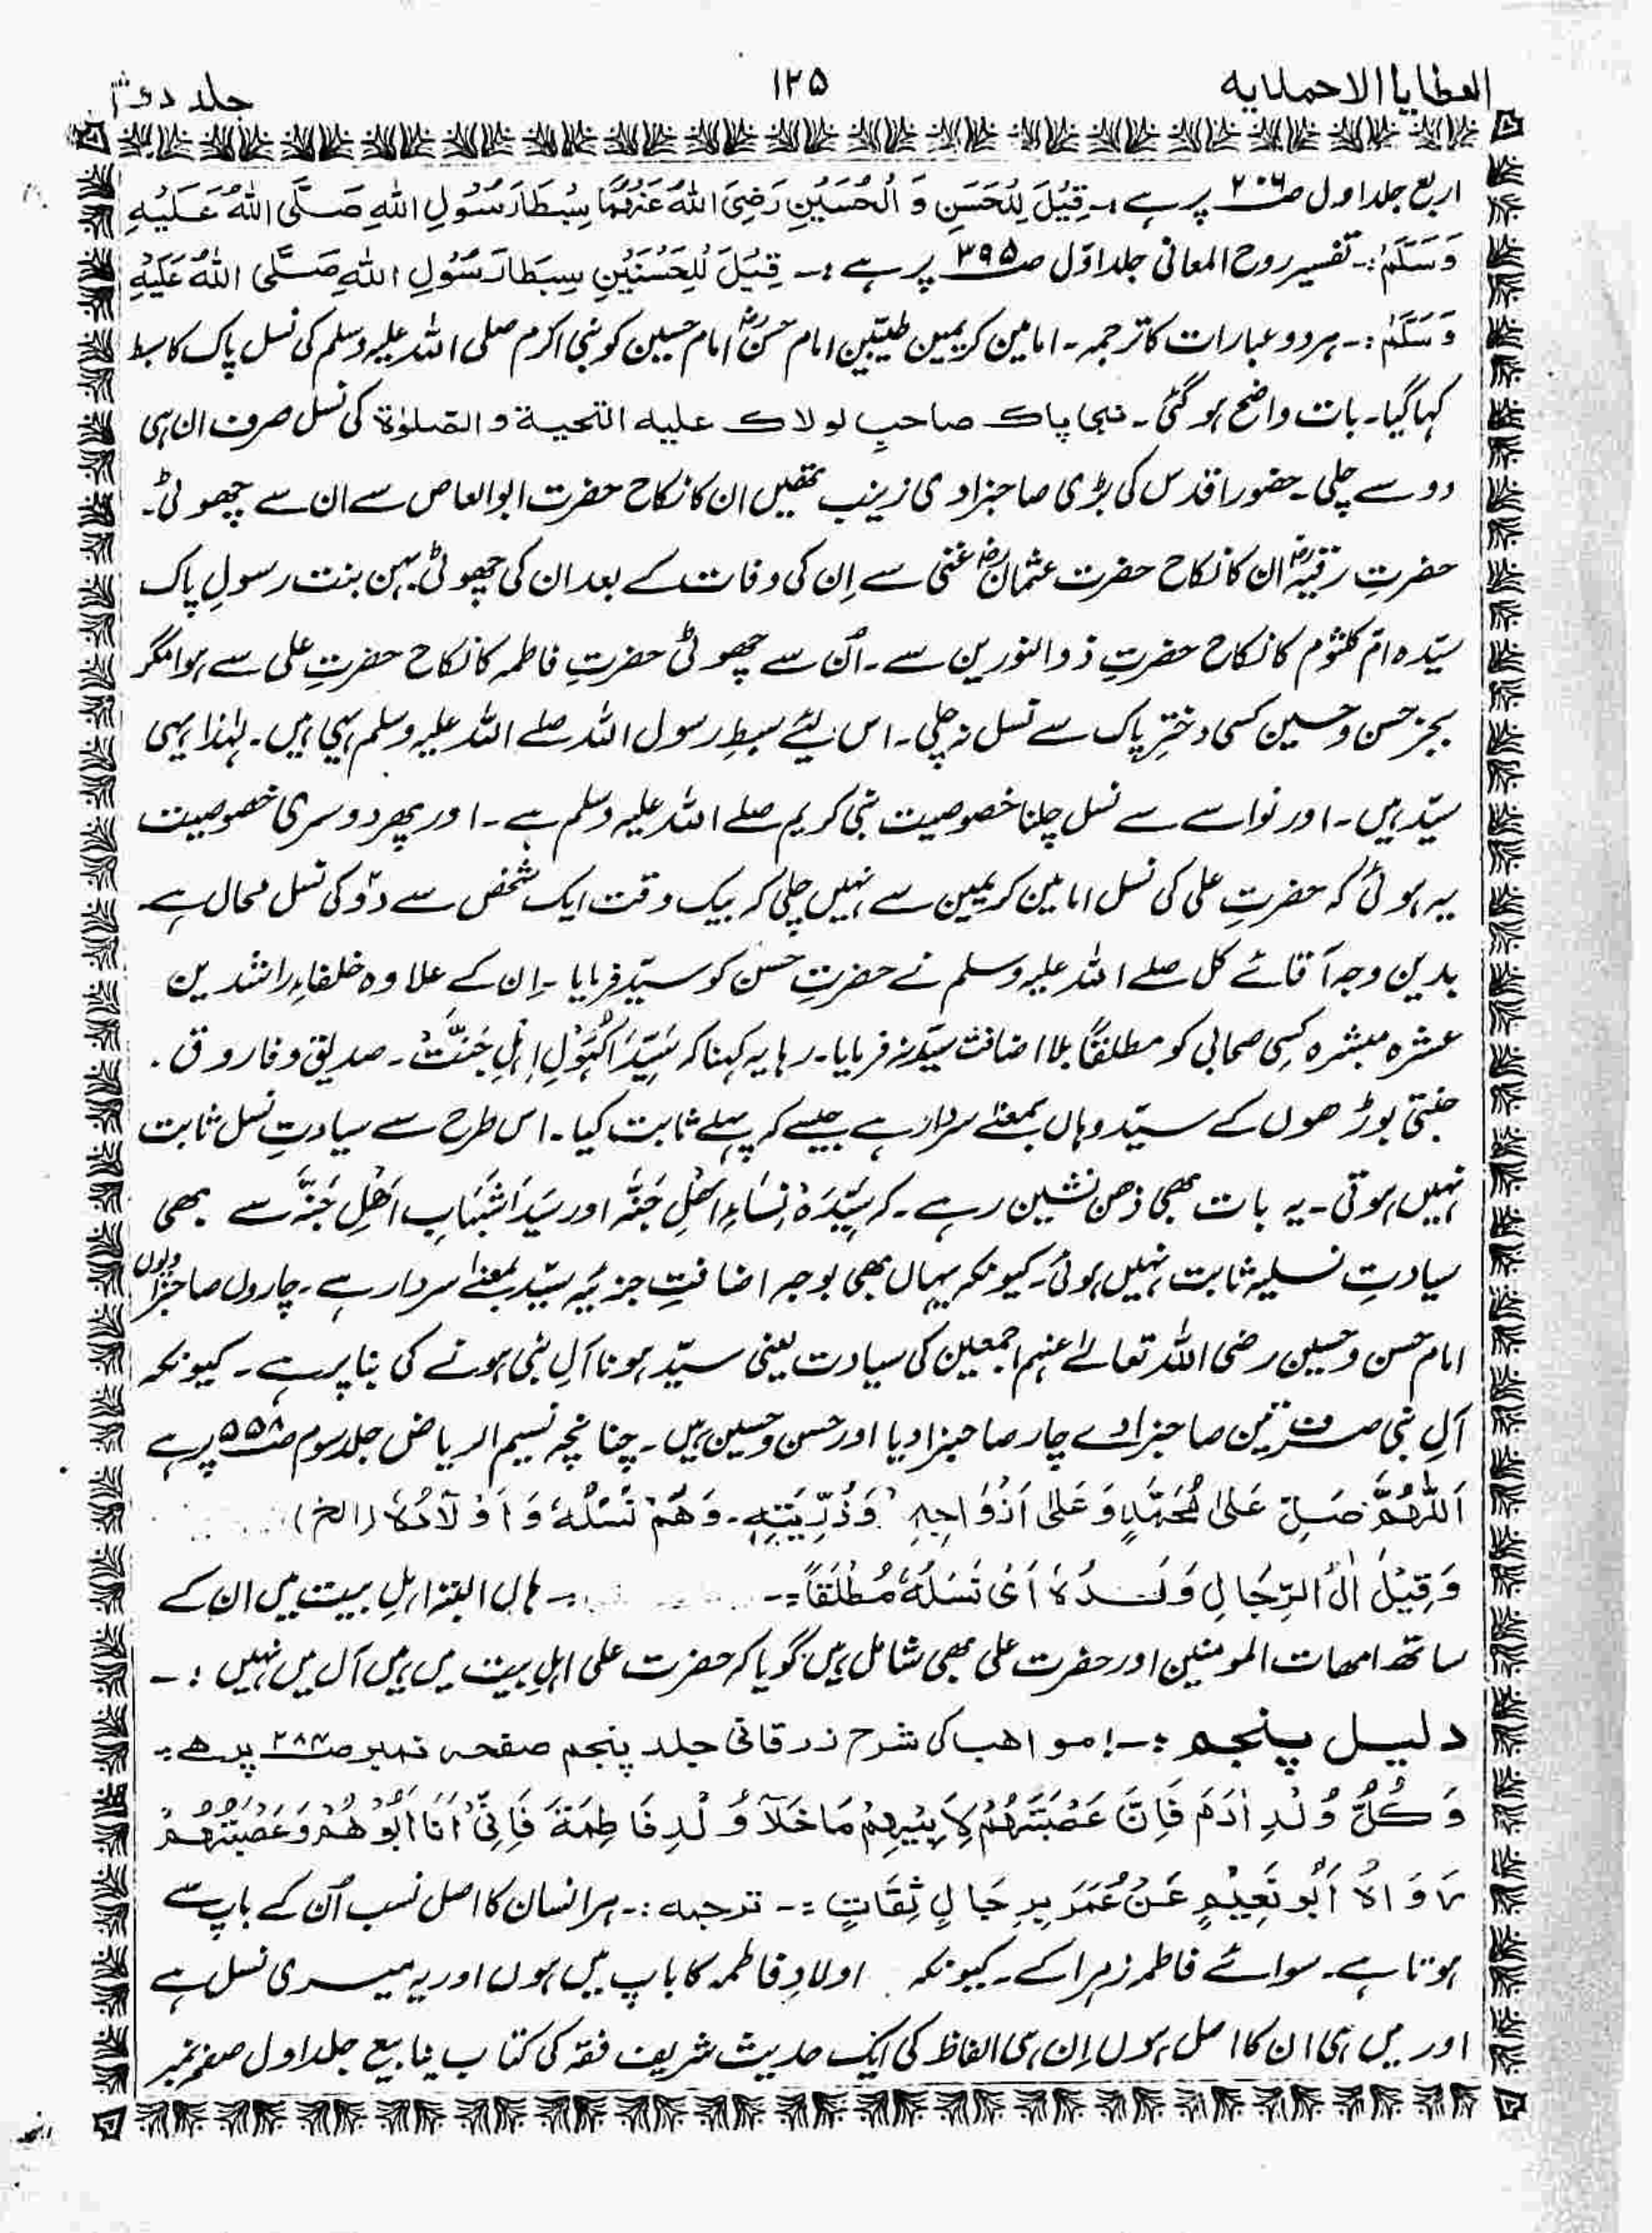 العطایا الاحمدیه
۱۲۵
جلد دوم
اربع جلد اول صـ۲۰۶ پر ہے :۔ قِیْلَ لِلْحَسَنِ وَ الْحُسَیْنِ رَضِیَ اللہُ عَنْہُمَا سِبْطَا رَسُوْلِ اللہِ صَلَّی اللہُ عَلَیْہِ
وَسَلَّمَ :۔ تفسیر روح المعانی جلد اوّل صـ۳۹۵ پر ہے :۔ قِیْلَ لِلْحَسَنَیْنِ سِبَطَا رَسُوْلِ اللہِ صَلَّی اللہُ عَلَیْہِ
وَسَلَّمَ :۔ ہر دو عبارات کا ترجمہ۔ امامین کریمین طیّبین امام حسنؓ امام حسین کو نبی اکرم صلی اللہ علیہ وسلم کی نسل پاک کا سبط
کہا گیا۔ بات واضح ہو گئی۔ نبی پاک صاحبِ لولاک علیه التحیة و الصلوٰة کی نسل صرف ان ہی
دو سے چلی۔ حضور اقدس کی بڑی صاحبزادی زینب تھیں ان کا نکاح حضرت ابوالعاص سے ان سے چھوٹی۔
حضرتِ رقیہؓ ان کا نکاح حضرت عثمانؓ غنی سے اِن کی وفات کے بعد ان کی چھوٹی بہن بنت رسولِ پاک
سیّدہ امّ کلثوم کا نکاح حضرتِ ذوالنورین سے۔ اُن سے چھوٹی حضرتِ فاطمہ کا نکاح حضرتِ علی سے ہوا مگر
بجز حسن و حسین کسی دخترِ پاک سے نسل نہ چلی۔ اس لیئے سبطِ رسول اللہ صلے اللہ علیہ وسلم یہی ہیں۔ لہٰذا یہی
سیّد ہیں۔ اور نواسے سے نسل چلنا خصوصیت نبی کریم صلے اللہ علیہ وسلم ہے۔ اور پھر دوسری خصوصیت
یہ ہوئی کہ حضرتِ علی کی نسل امامین کریمین سے نہیں چلی کہ بیک وقت ایک شخص سے دوّ کی نسل محال ہے
بدین وجہ آقائے کل صلے اللہ علیہ وسلم نے حضرتِ حسن کو سیّد فرمایا۔ اِن کے علاوہ خلفاءِ راشدین
عشرہ مبشرہ کسِی صحابی کو مطلقاً بلا اضافت سیّد نہ فرمایا۔ رہا یہ کہنا کہ سَیِّدَا کُہُوْلِ اہْلِ جَنَّتْ۔ صدیق و فاروق۔
جنتی بوڑھوں کے سیّد وہاں بمعنٰے سردار ہے جیسے کہ پہلے ثابت کیا۔ اس طرح سے سیادتِ نسل ثابت
نہیں ہوتی۔ یہ بات بھی ذھن نشین رہے۔ کہ سَیِّدَہْ نِسَاءِ اَھْلِ جَنَّہْ اور سَیِّدَا شَبَابِ اَھْلِ جَنَّہ سے بھی
سیادتِ نسلیہ ثابت نہیں ہوئی۔ کیونکہ یہاں بھی بوجہ اضافتِ جزئیہ سیّد بمعنٰے سردار ہے۔ چاروں صاحبزادیوں
امام حسن و حسین رضی اللہ تعالےٰ عنہم اجمعین کی سیادت یعنی سیّد ہونا آلِ نبی ہونے کی بنا پر ہے۔ کیونکہ
آلِ نبی صرف تین صاحبزادے چار صاحبزادیا اور حسن و حسین ہیں۔ چنانچہ نسیم الریاض جلد سوم صـ۵۵۸ پر ہے
اَللّٰهُمَّ صَلِّ عَلیٰ مُحَمَّدٍ وَ عَلیٰ اَزْوَاجِہٖ وَ ذُرِّیَّتِہٖ۔ وَھُمْ نَسْلُہٗ وَ اَوْلَادُہٗ (الخ)
وَ قِیْلَ اٰلُ الرِّجَالِ وَلَدُہٗ اَیْ نَسْلُہٗ مُطْلَقاً :۔ :۔ ہاں البتہ اہلِ بیت میں ان کے
ساتھ امھات المومنین اور حضرت علی بھی شامل ہیں گویا کہ حضرت علی اہلِ بیت میں ہیں آل میں نہیں :۔
دلیل پنجم :۔! مواھب کی شرح زرقانی جلد پنجم صفحہ نمبر صـ۲۸۴ پر ھے :۔
وَ کُلُّ وُلْدِ اٰدَمَ فَاِنَّ عَصْبَتَہُمْ لِاَبِیْہِمْ مَا خَلَا وُلْدِ فَاطِمَةَ فَاِنِّیْ اَنَا اَبُوْھُمْ وَ عَصْبَتُہُمْ
رَوَاہُ اَبُوْ نَعِیْمٍ عَنْ عُمَرَ بِرِجَالٍ ثِقَاتٍ :۔ ترجمہ :۔ ہر انسان کا اصل نسب اُن کے باپ سے
ہوتا ہے۔ سوائے فاطمہ زہرا کے۔ کیونکہ اولادِ فاطمہ کا باپ میں ہوں اور یہ میری نسل ہے
اور میں ہی ان کا اصل ہوں اِن ہی الفاظ کی ایک حدیث شریف فقہ کی کتاب ینابیع جلد اول صفحہ نمبر